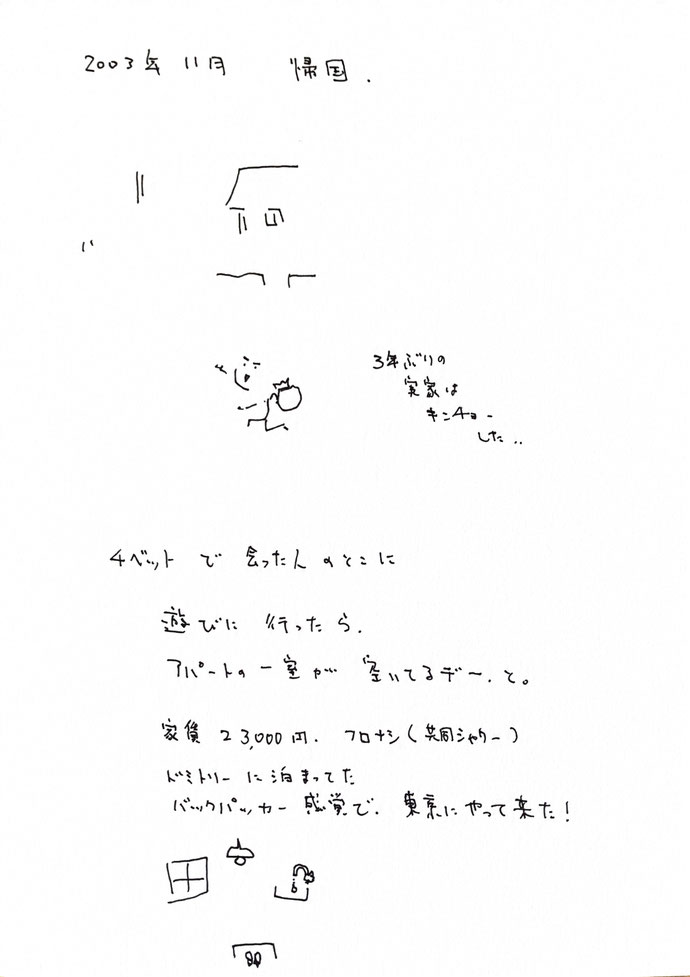 2003年 11月 帰国.
3年ぶりの
実家は
キンチョー
した..
チベットで 会った人のとこに
遊びに 行ったら.
アパートの一室が 空いてるデー.と。
家賃 23,000円. フロナシ(共同シャワー)
ドミトリーに泊まってた
バックパッカー感覚で. 東京にやって来た!